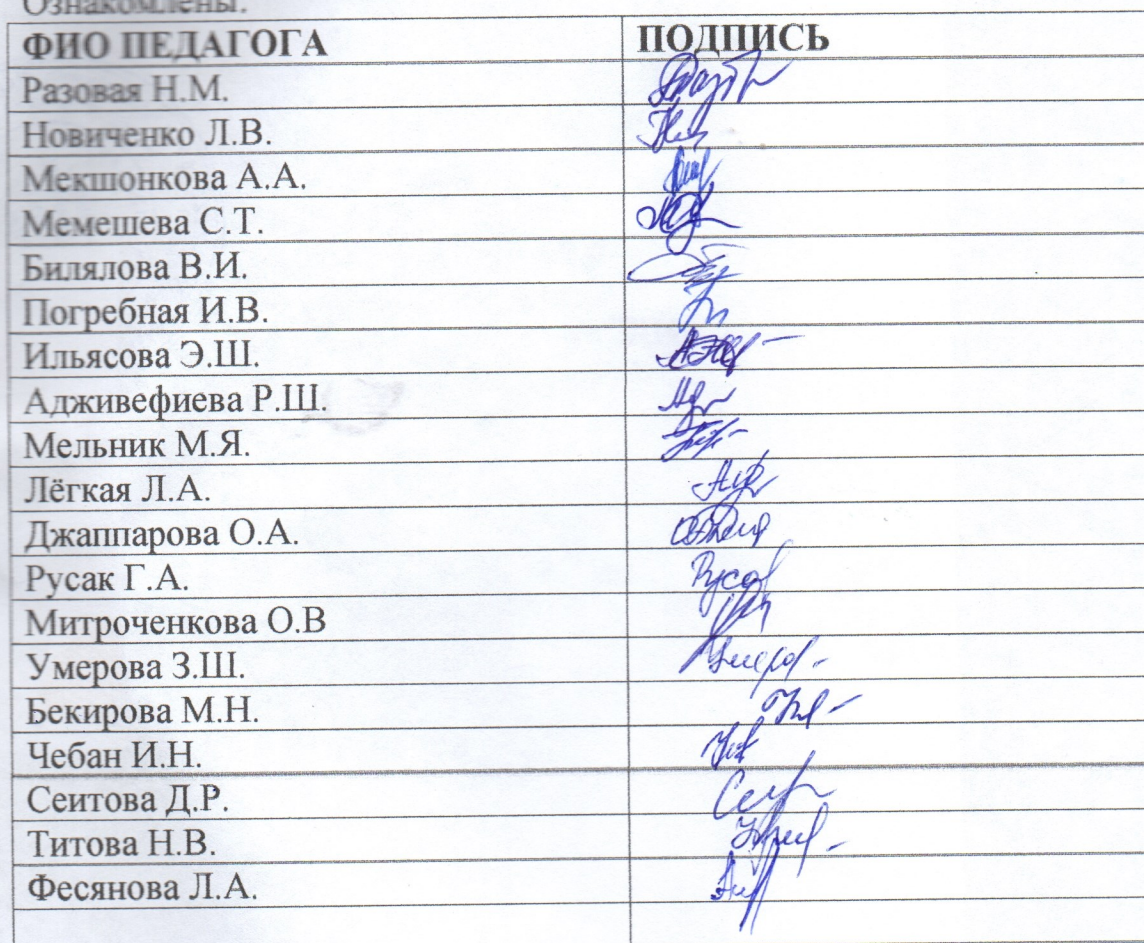 Ознакомлены:
ФИО ПЕДАГОГА ПОДПИСЬ
Разовая Н.М.
Новиченко Л.В.
Мекшонкова А.А.
Мемешева С.Т.
Билялова В.И.
Погребная И.В.
Ильясова Э.Ш.
Адживефиева Р.Ш.
Мельник М.Я.
Лёгкая Л.А.
Джаппарова О.А.
Русак Г.А.
Митроченкова О.В
Умерова З.Ш.
Бекирова М.Н.
Чебан И.Н.
Сеитова Д.Р.
Титова Н.В.
Фесянова Л.А.